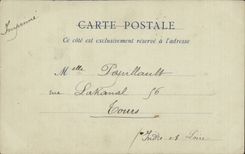 Imprimé
CARTE POSTALE
Ce côté est exclusivement réservé à l'adresse
Melle Pouillault
rue Lakanal 56
Tours
Indre et Loire